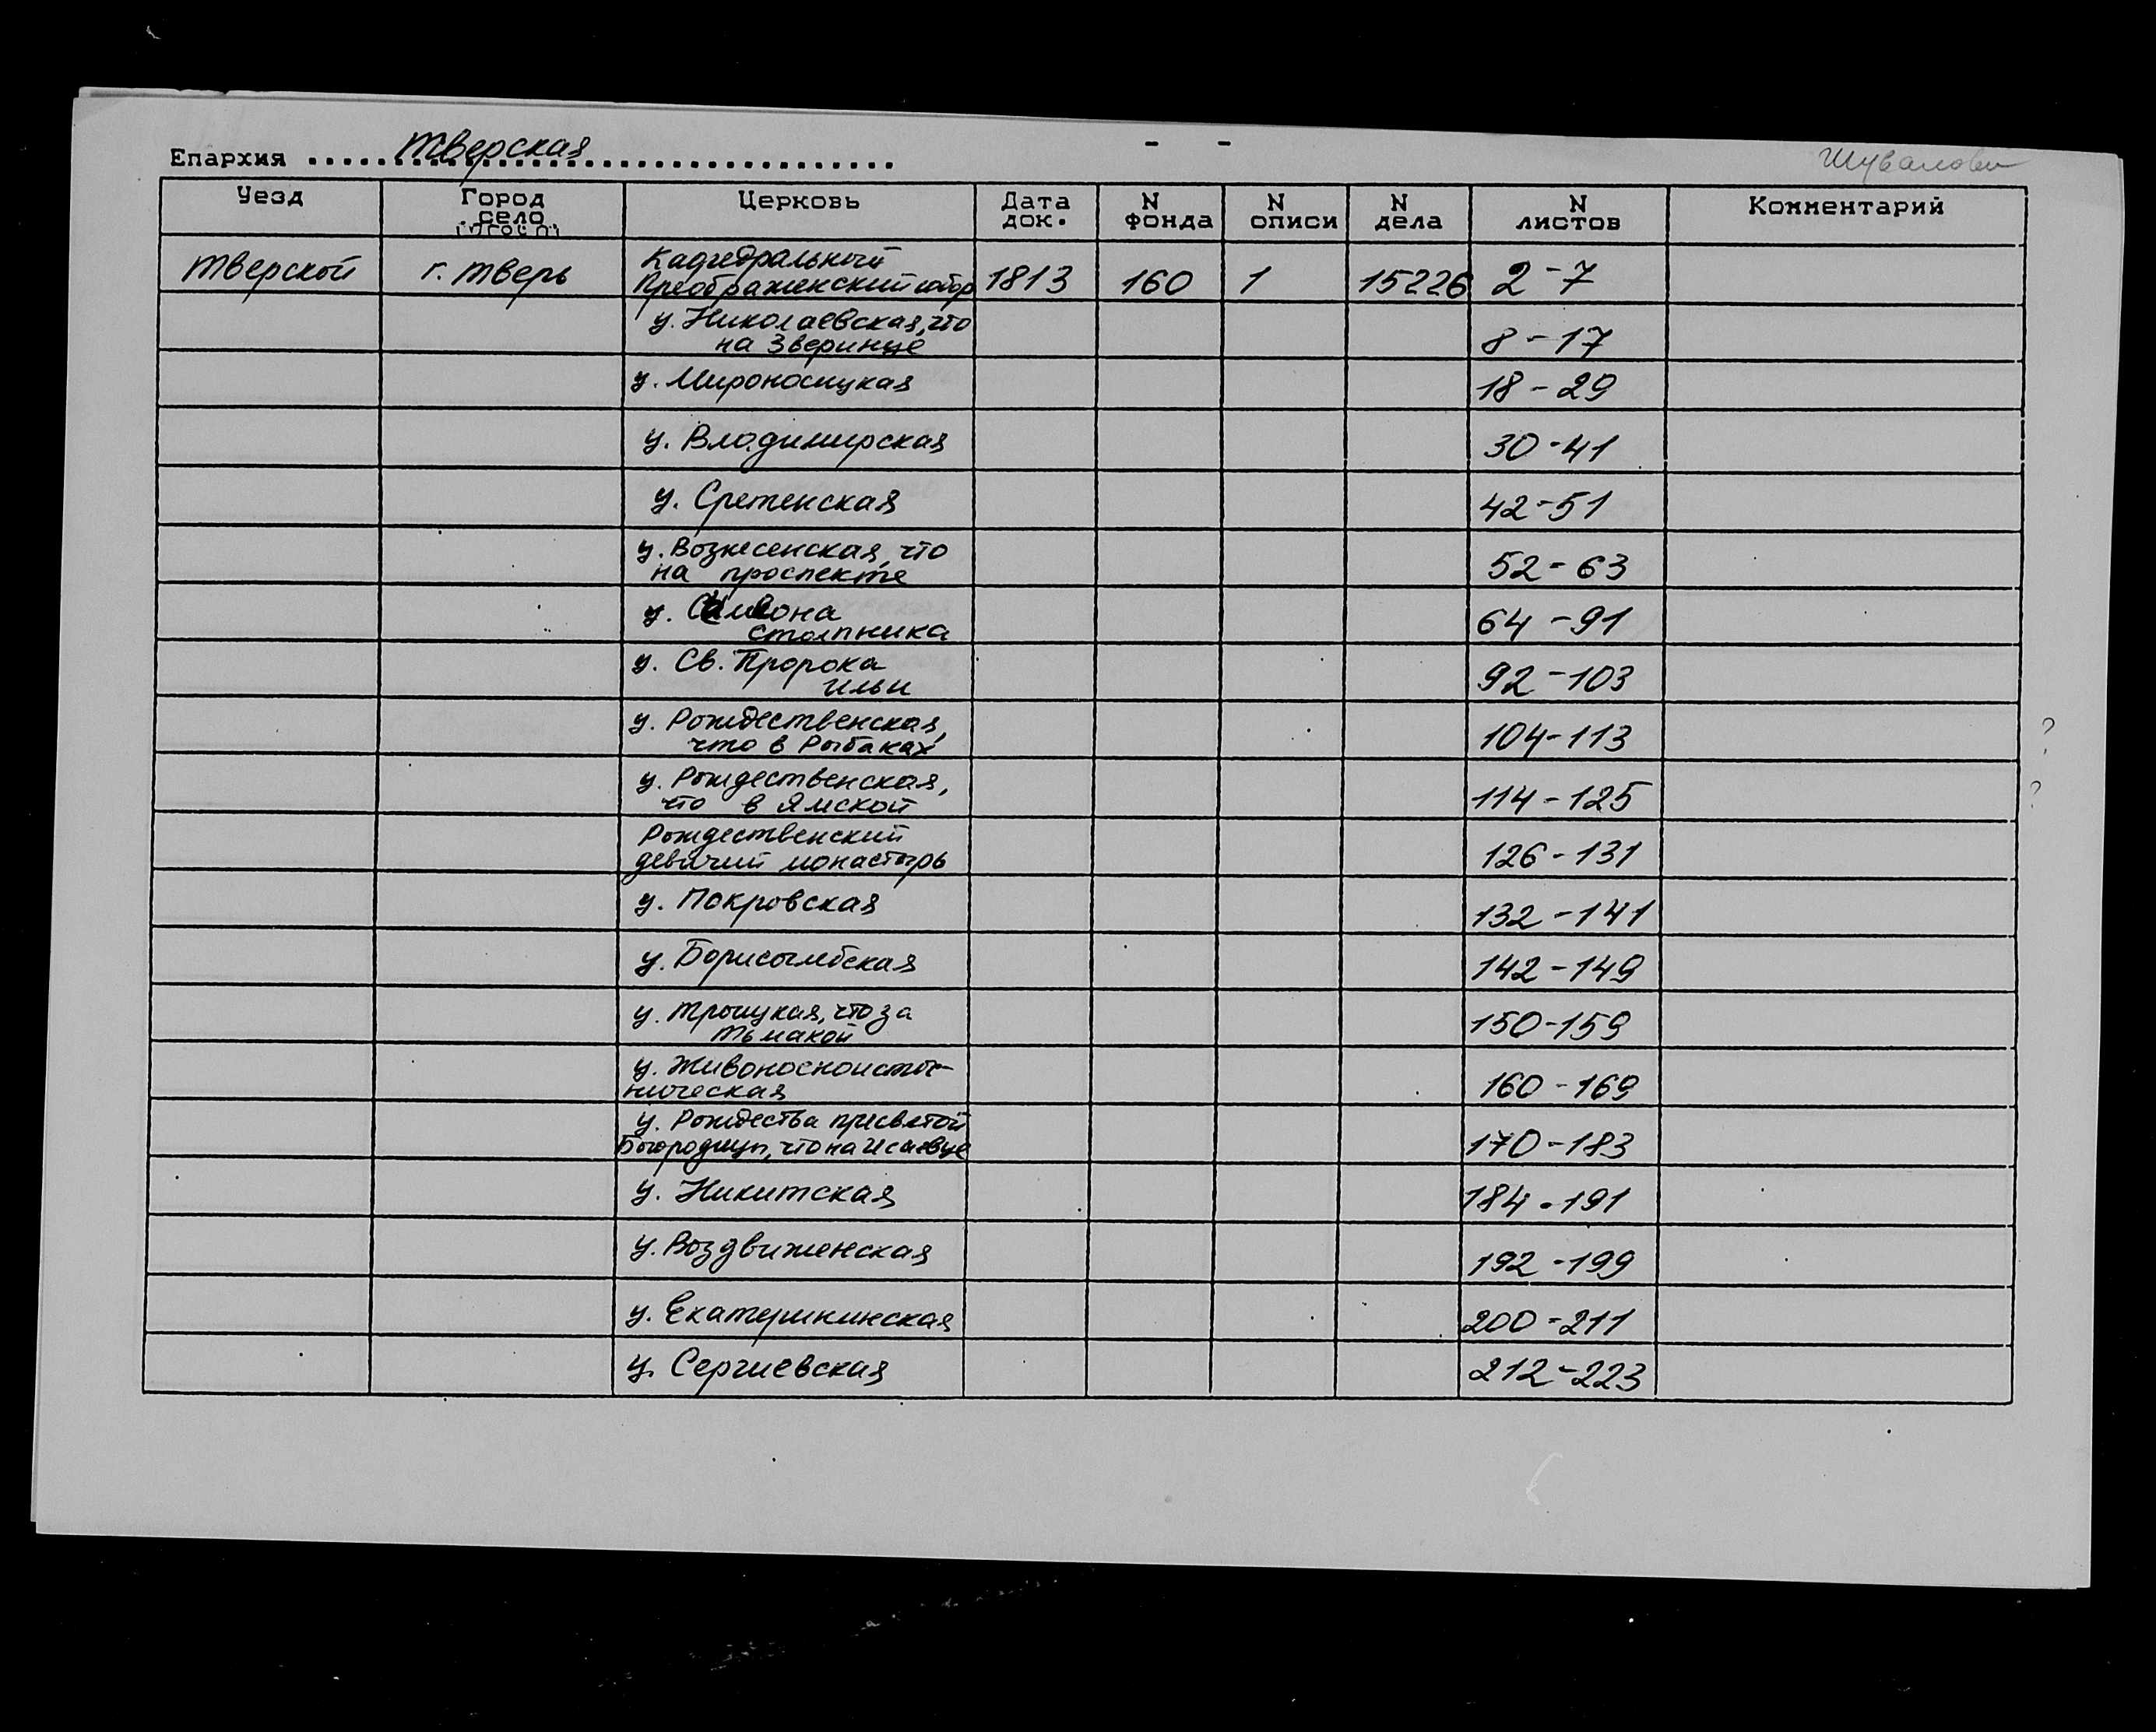 Епархия Тверская
Шувалова
Уезд Город село погост Церковь Дата док. N фонда N описи N дела N листов Комментарий
Тверской г. Тверь Кафедральный
Преображенский собор 1813 160 1 15226 2-7
ц. Николаевская, что
на Зверинце 8-17
ц. Мироносицкая 18-29
ц. Владимирская 30-41
ц. Сретенская 42-51
ц. Вознесенская, что
на проспекте 52-63
ц. Симеона
столпника 64-91
ц. Св. Пророка
Ильи 92-103
ц. Рождественская,
что в Рыбаках 104-113 ?
ц. Рождественская,
что в Ямской 114-125 ?
Рождественский
девичий монастырь 126-131
ц. Покровская 132-141
ц. Борисоглебская 142-149
ц. Троицкая, что за
Тьмакой 150-159
ц. Живоносноисточ-
ническая 160-169
ц. Рождества присвятой
Богородицы, что на Исаевце 170-183
ц. Никитская 184-191
ц. Воздвиженская 192-199
ц. Екатерининская 200-211
ц. Сергиевская 212-223